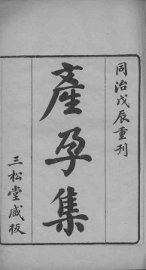 同治戊辰重刊
產孕集
三松堂藏板